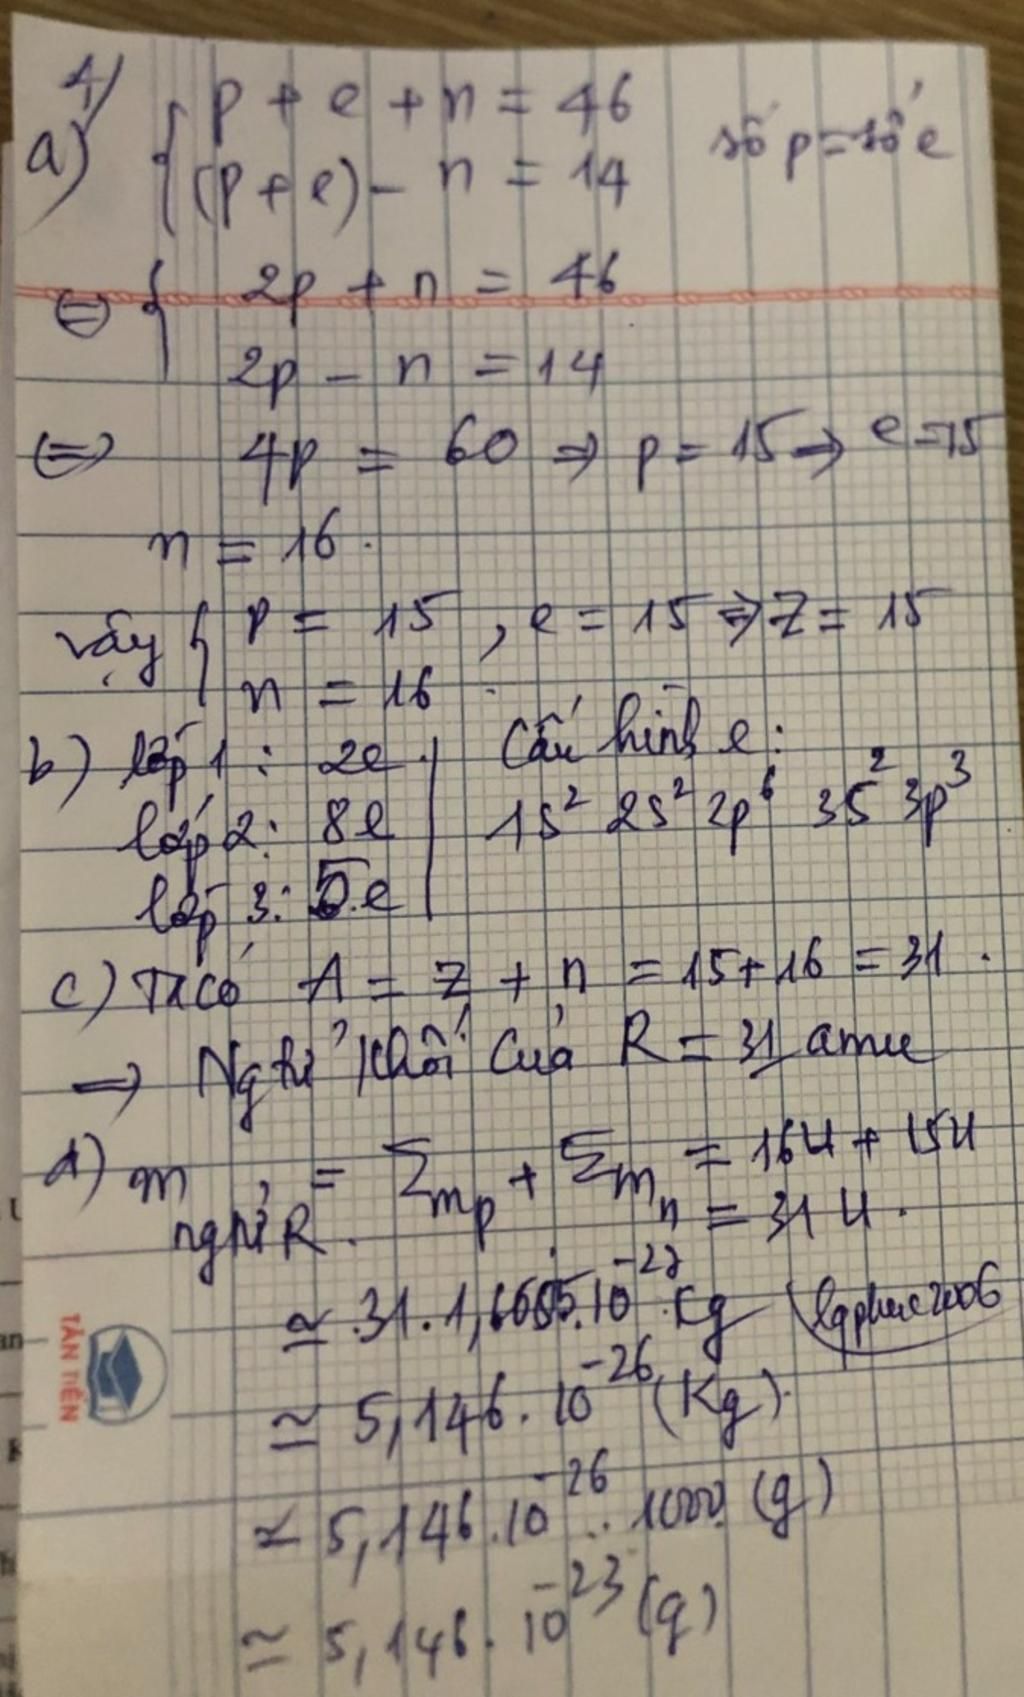 4/
a) { p + e + n = 46
(p + e) - n = 14 số p = số e
⇔ { 2p + n = 46
2p - n = 14
⇔ 4p = 60 ⇒ p = 15 ⇒ e = 15
n = 16.
Vậy { p = 15, e = 15 ⇒ Z = 15
n = 16.
b) lớp 1: 2e.
lớp 2: 8e
lớp 3: 5e
Cấu hình e:
1s² 2s² 2p⁶ 3s² 3p³
c) Ta có A = Z + n = 15 + 16 = 31.
→ Ngtử khối của R = 31 amu
d) m ngtử R = Σmp + Σmn = 16u + 15u
= 31 u.
≃ 31 . 1,6605.10⁻²⁷ Kg
lqphuc2006
≃ 5,146 . 10⁻²⁶ (Kg).
≃ 5,146.10⁻²⁶ . 1000 (g)
≃ 5,146 . 10⁻²³ (g)
TÂN TIẾN